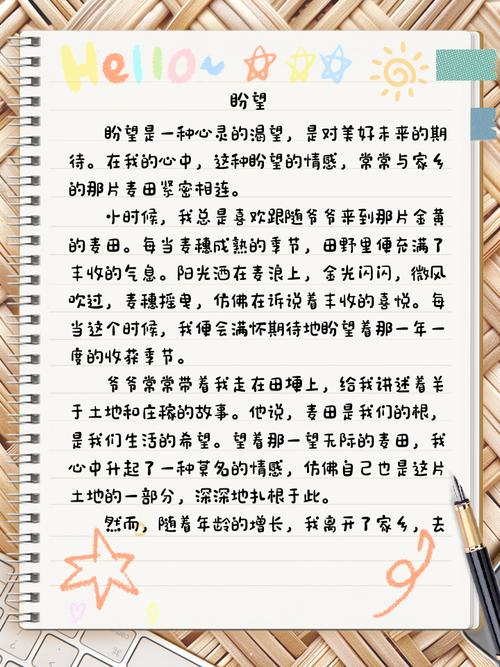 Hello~
盼望
盼望是一种心灵的渴望，是对美好未来的期
待。在我的心中，这种盼望的情感，常常与家乡
的那片麦田紧密相连。
小时候，我总是喜欢跟随爷爷来到那片金黄
的麦田。每当麦穗成熟的季节，田野里便充满了
丰收的气息。阳光洒在麦浪上，金光闪闪，微风
吹过，麦穗摇曳，仿佛在诉说着丰收的喜悦。每
当这个时候，我便会满怀期待地盼望着那一年一
度的收获季节。
爷爷常常带着我走在田埂上，给我讲述着关
于土地和庄稼的故事。他说，麦田是我们的根，
是我们生活的希望。望着那一望无际的麦田，我
心中升起了一种莫名的情感，仿佛自己也是这片
土地的一部分，深深地扎根于此。
然而，随着年龄的增长，我离开了家乡，去